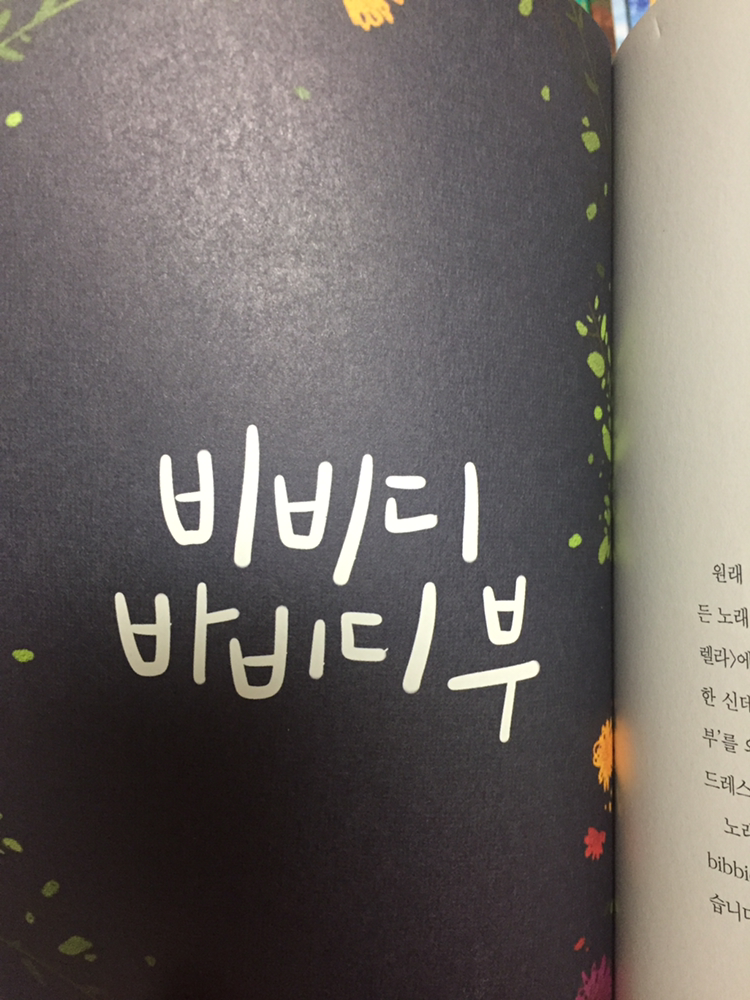 비비디
바비디 부
원래
든 노래
렐라>에
한 신데
부'를
드레스
노래
bibbi
습니다